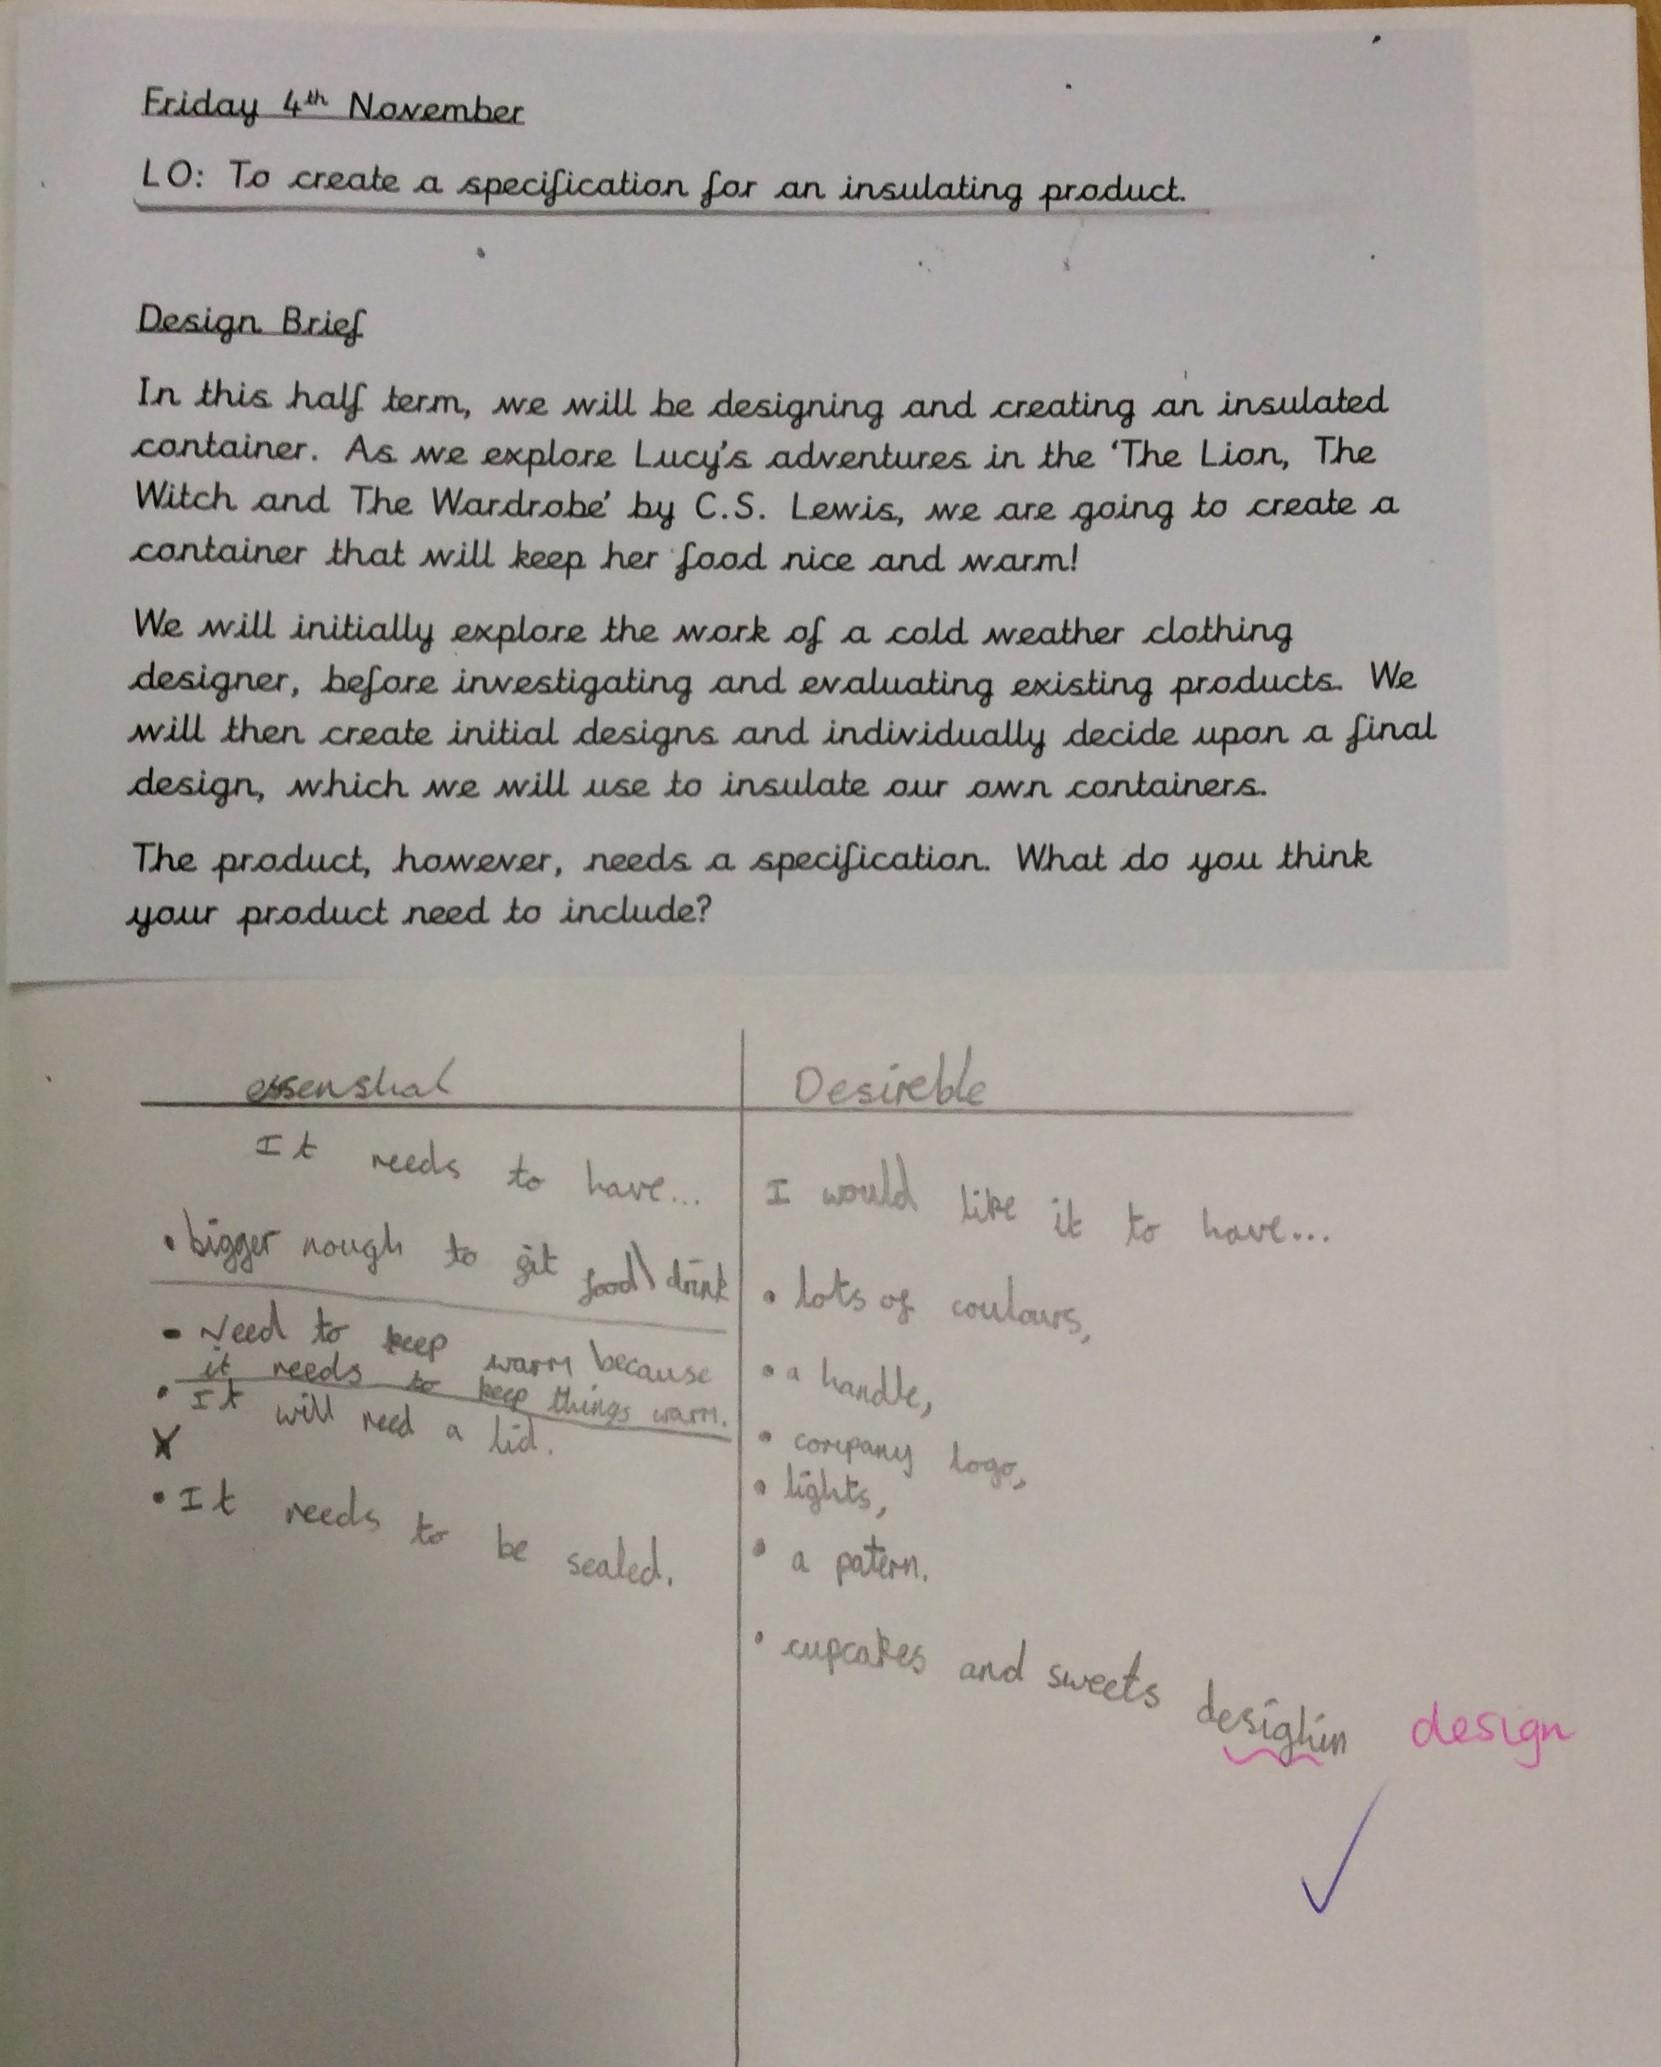 Friday 4th November
LO: To create a specification for an insulating product.
Design Brief
In this half term, we will be designing and creating an insulated
container. As we explore Lucy's adventures in the 'The Lion, The
Witch and The Wardrobe' by C.S. Lewis, we are going to create a
container that will keep her food nice and warm!
We will initially explore the work of a cold weather clothing
designer, before investigating and evaluating existing products. We
will then create initial designs and individually decide upon a final
design, which we will use to insulate our own containers.
The product, however, needs a specification. What do you think
your product need to include?
essenshal
It needs to have...
• bigger nough to git food\ drink
• Need to keep warm because
it needs to keep things warm.
• It will need a lid.
x
• It needs to be sealed.
Desireble
I would like it to have...
• lots of coulours,
• a handle,
• company logo,
• lights,
• a patern.
• cupcakes and sweets desighin design